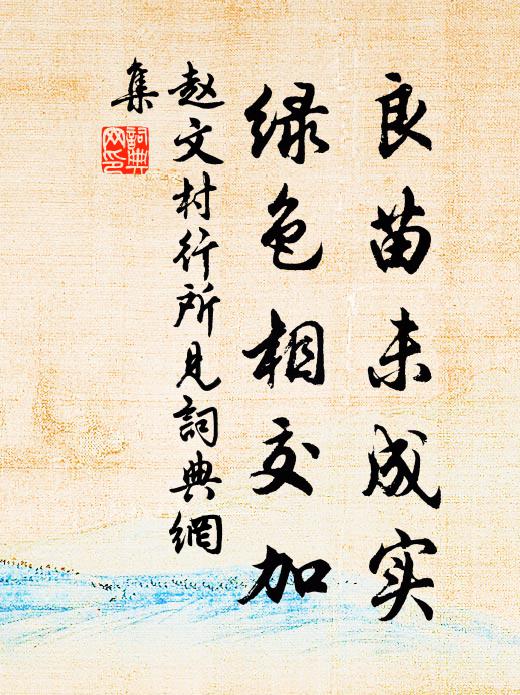 良苗未成实
绿色相交加
赵文村行所见詞典網
集
詞典
网印